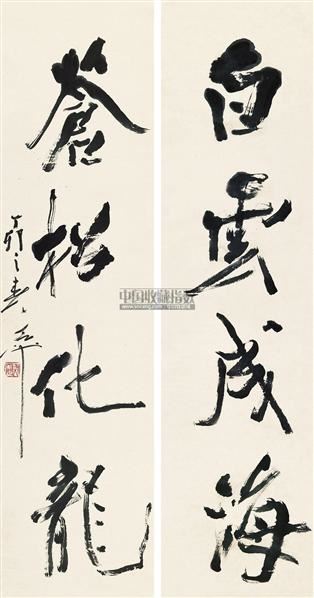 白雲成海
蒼松化龍
丁卯之春
中国收藏指数